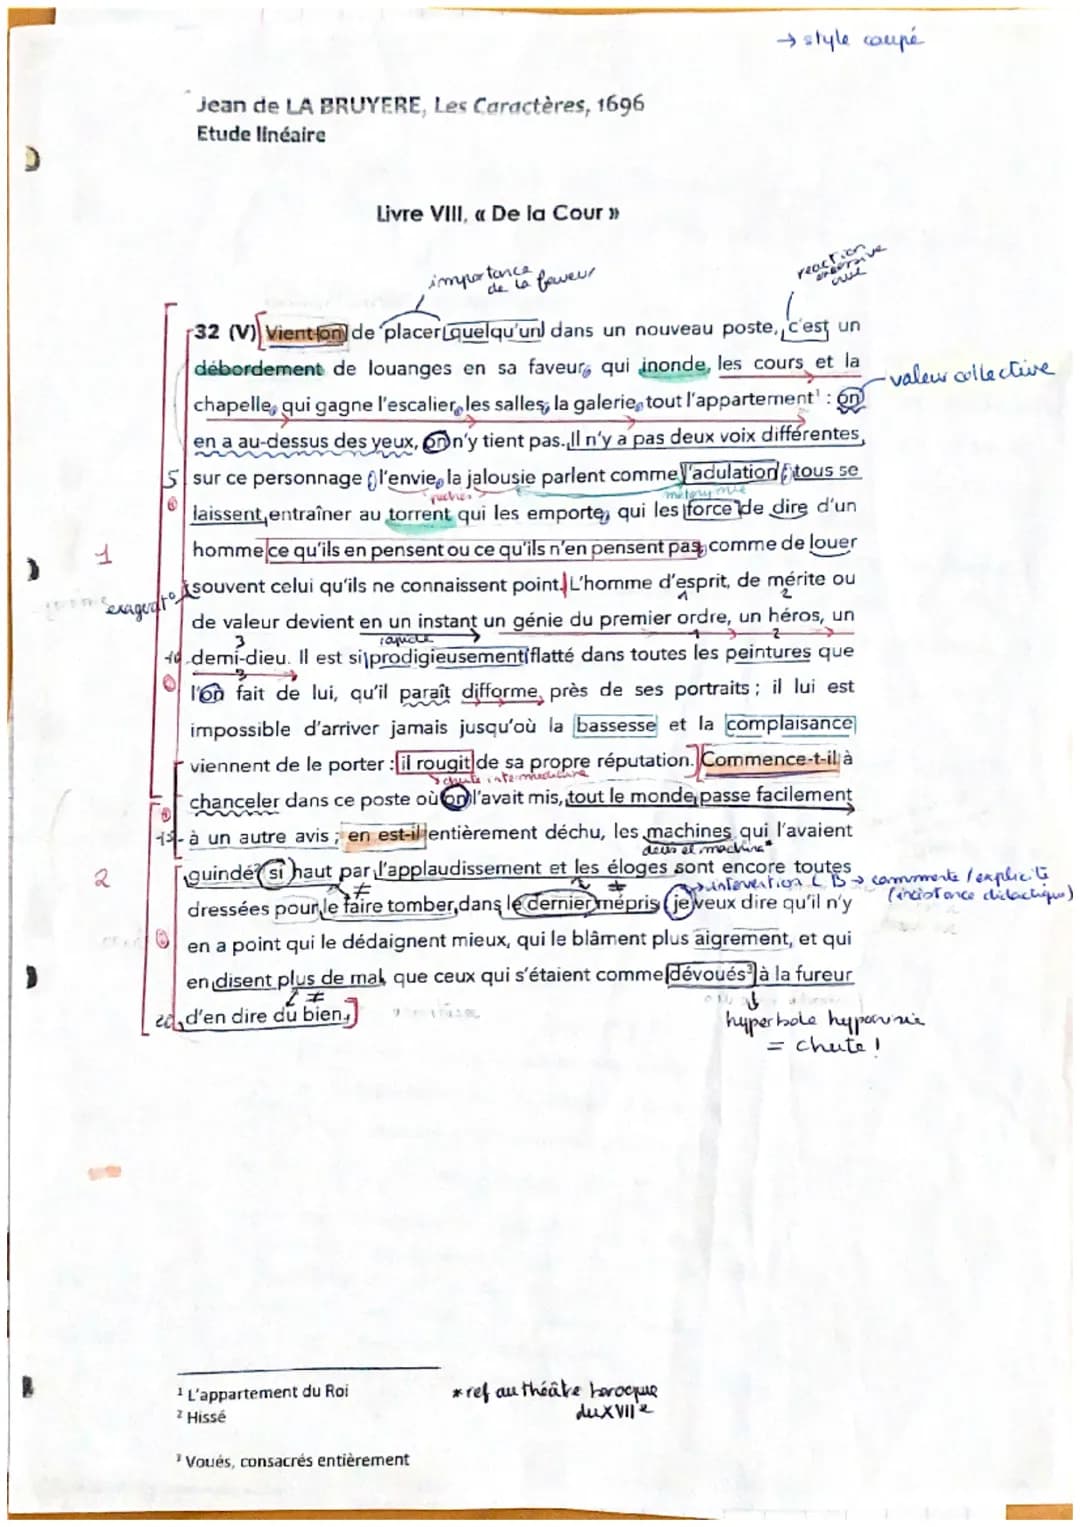 → style coupé
Jean de LA BRUYERE, Les Caractères, 1696
Etude linéaire
Livre VIII, « De la Cour »
importance
de la faveur
reaction
excessive
32 (V) Vient-on de placer quelqu'un dans un nouveau poste, c'est un
débordement de louanges en sa faveur, qui inonde les cours et la
valeur collective
chapelle, qui gagne l'escalier, les salles, la galerie, tout l'appartement¹ : on
en a au-dessus des yeux, on n'y tient pas. Il n'y a pas deux voix différentes
5 sur ce personnage ; l'envie, la jalousie parlent comme l'adulation ; tous se
métonymie
laissent entraîner au torrent qui les emporte, qui les force de dire d'un
1
homme ce qu'ils en pensent ou ce qu'ils n'en pensent pas, comme de louer
souvent celui qu'ils ne connaissent point. L'homme d'esprit, de mérite ou
exagerat°
1 2
de valeur devient en un instant un génie du premier ordre, un héros, un
3 rapide 1 2
10 demi-dieu. Il est si prodigieusement flatté dans toutes les peintures que
3
l'on fait de lui, qu'il paraît difforme près de ses portraits ; il lui est
impossible d'arriver jamais jusqu'où la bassesse et la complaisance
viennent de le porter : il rougit de sa propre réputation. Commence-t-il à
chute intermédiaire
chanceler dans ce poste où on l'avait mis, tout le monde passe facilement
15 à un autre avis ; en est-il entièrement déchu, les machines qui l'avaient
deus ex machina*
2
guindé² si haut par l'applaudissement et les éloges sont encore toutes
≠ ≠ → intervention LB → commente / explicite
(insistance didactique)
dressées pour le faire tomber dans le dernier mépris ; je veux dire qu'il n'y
en a point qui le dédaignent mieux, qui le blâment plus aigrement, et qui
en disent plus de mal, que ceux qui s'étaient comme dévoués³ à la fureur
≠
20 d'en dire du bien.
hyperbole hypocrisie
= chute !
¹ L'appartement du Roi
² Hissé
* ref au théâtre baroque
du XVIIe
³ Voués, consacrés entièrement